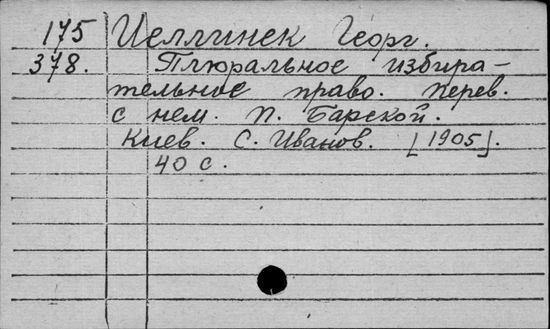 175 Иеллинек Георг.
378. Плюральное избира-
тельное право. Перев.
с нем. П. Барской.
Киев. С. Иванов. [1905].
40 с.